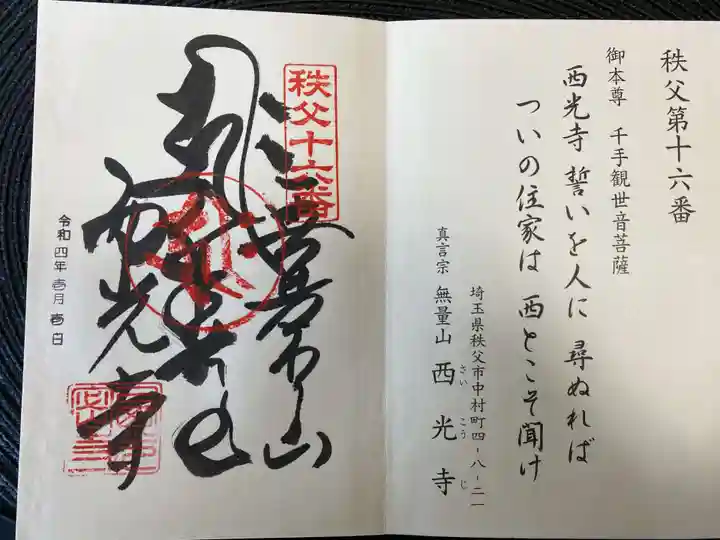 秩父第十六番
御本尊 千手観世音菩薩
西光寺 誓いを人に 尋ぬれば
ついの住家は 西とこそ聞け
埼玉県秩父市中村町四-八-二一
真言宗 無量山 西光寺
さいこうじ
秩父十六番
無量山
西光寺
令和四年壱月壱日